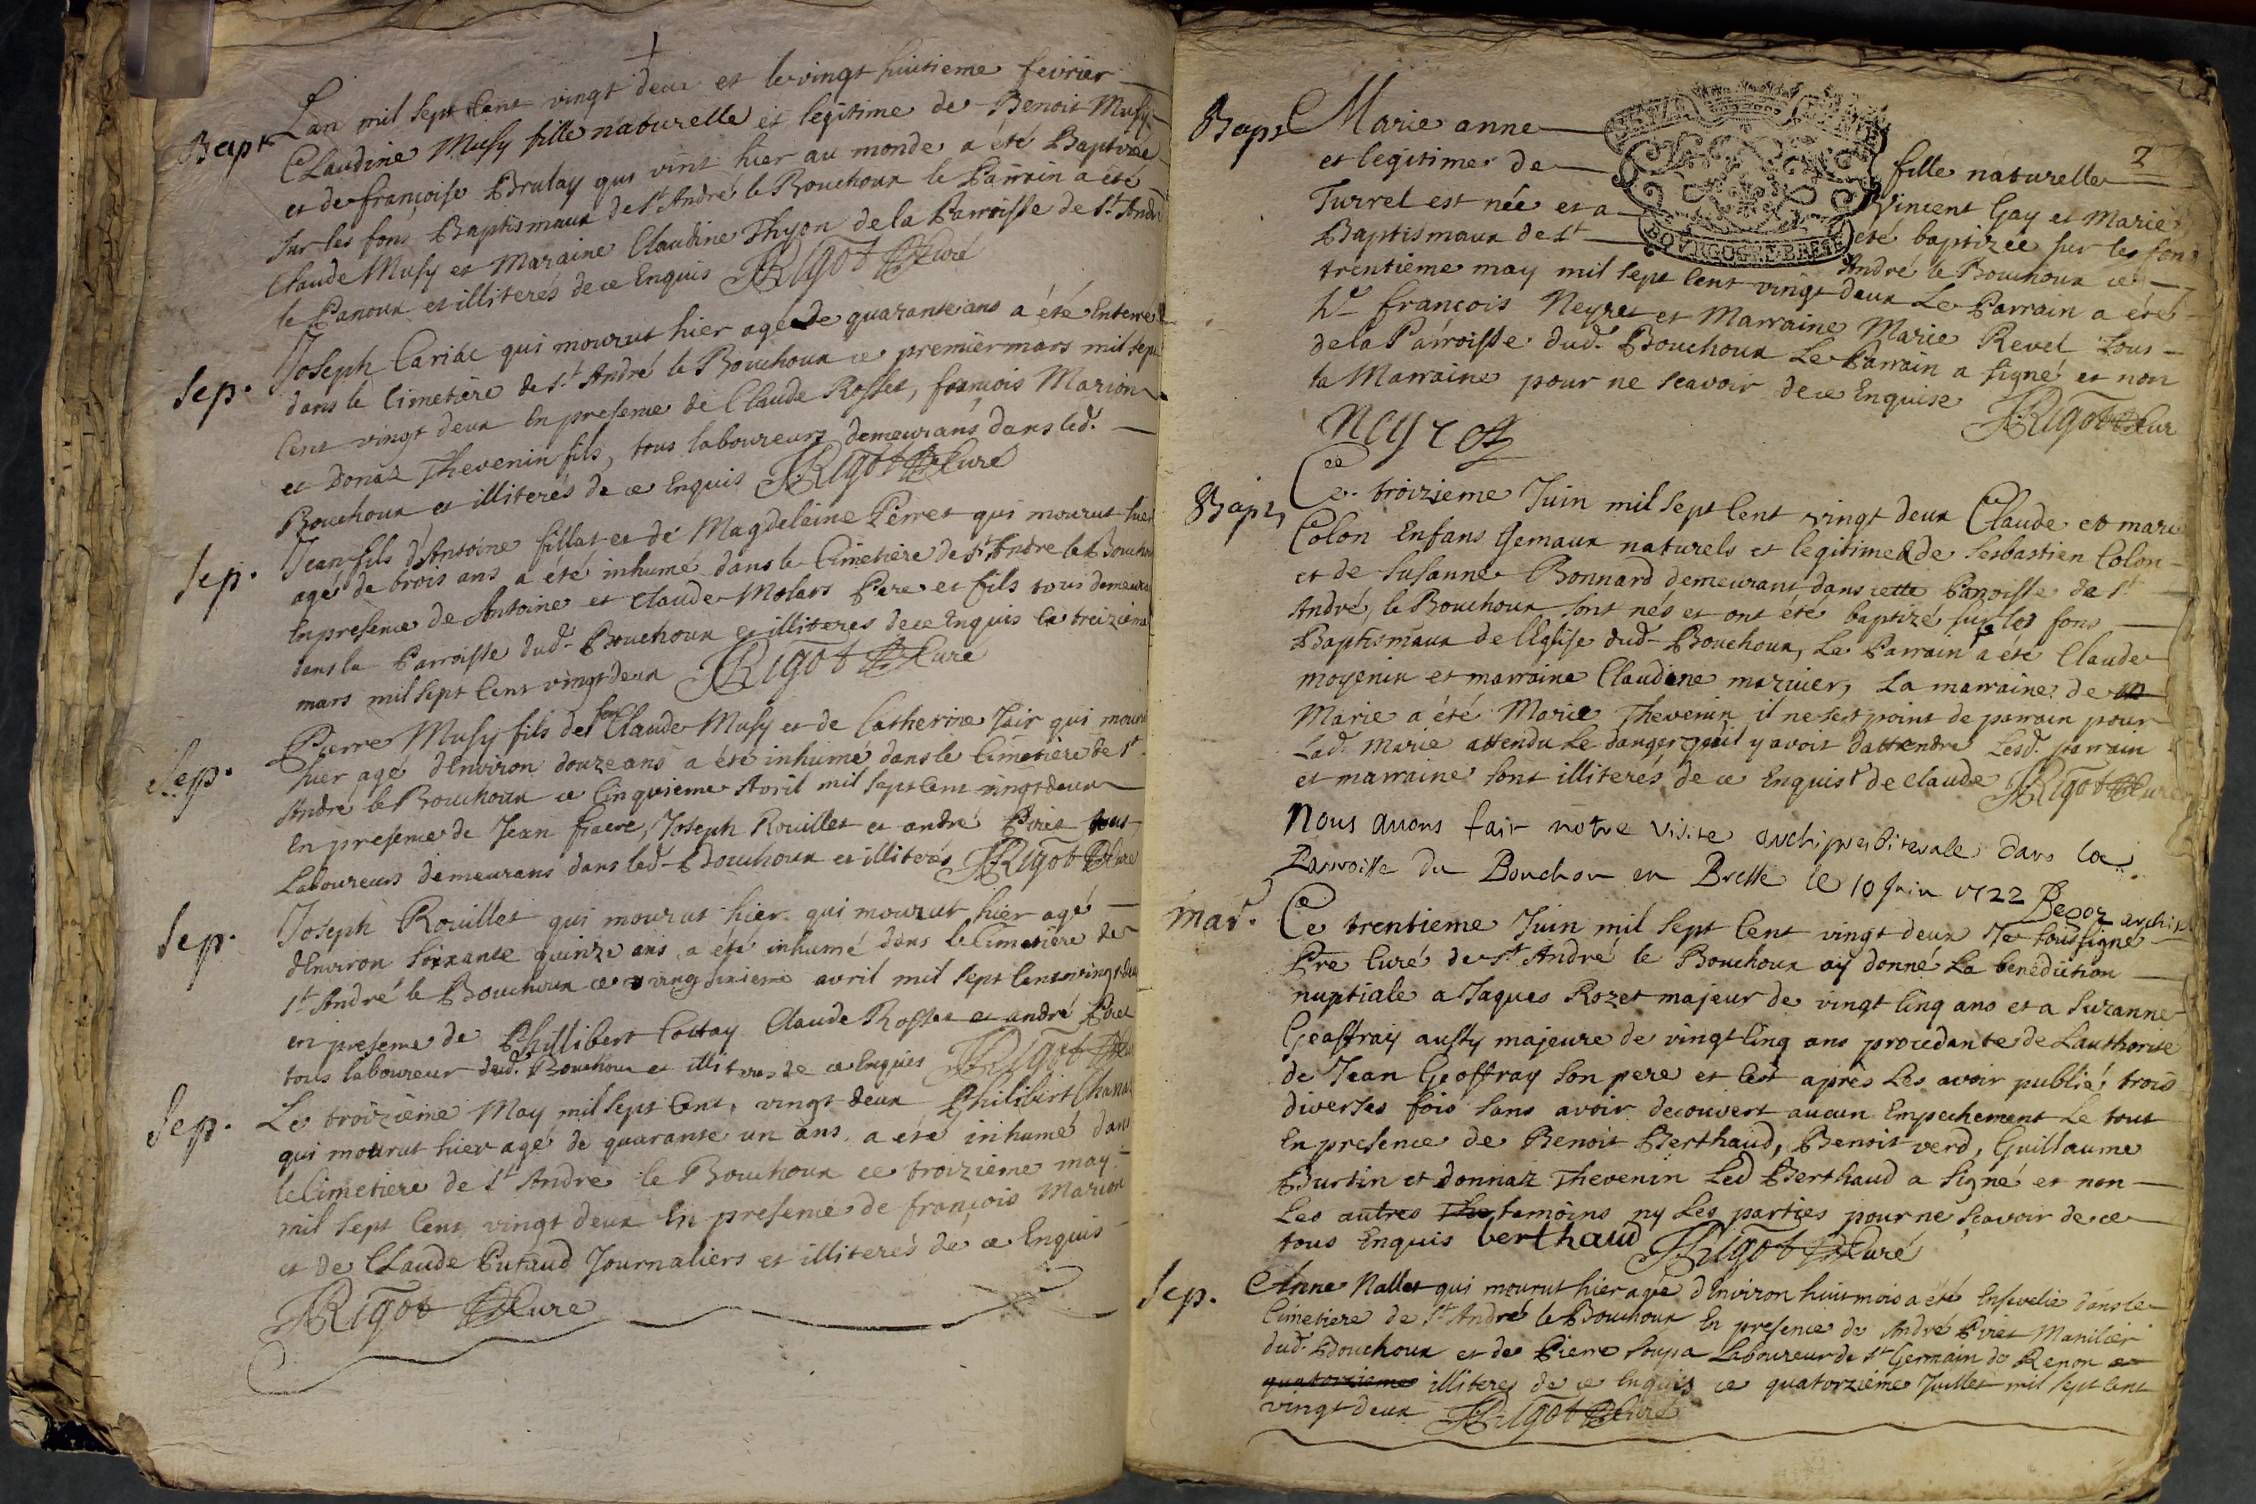 Bapt
Lan mil sept Cent vingt deux et le vingt huitieme fevrier
Claudine Musy fille naturelle et legitime de Benoit Musy
et de françoise Brulay qui vint hier au monde a été Baptizee
sur les fons Baptismaux de St André le Bouchoux le Parrain a été
Claude Musy et Maraine Claudine Thyon de la Parroisse de St. André
le Panoux et illiterés de ce Enquis Rigot Curé
Sep.
Joseph Cariac qui mourut hier agé de quarante ans a été Enterré
dans le Cimetiere de St. André le Bouchoux ce premier mars mil sept
Cent vingt deux En presence de Claude Rosset, françois Marion
et Donaz Thevenin fils, tous laboureurs demeurans dans led.
Bouchoux et illiterés de ce Enquis Rigot Curé
Sep.
Jean fils d'Antoine fillat et de Magdelaine Perret qui mourut hier
agé de trois ans a été inhumé dans le Cimetière de St André le Bouchoux
En presence de Antoine et Claude Molars Pere et fils tous demeurans
dans la Parroisse dud. Bouchoux et illiteres de ce Enquis ce troizieme
mars mil sept Cent vingt deux Rigot Curé
Sep.
Pierre Musy fils de feu Claude Musy et de Catherine Jair qui mourut
hier agé d'Environ douze ans a été inhumé dans le Cimetiere de St
André le Bouchoux ce Cinquieme Avril mil sept Cent vingt deux
En presence de Jean fraere, Joseph Rouillet et andré Piret tous
Laboureurs demeurans dans led. Bouchoux et illiterés Rigot Curé
Sep.
Joseph Rouillet qui mourut hier qui mourut hier agé
d'Environ soixante quinze ans a été inhumé dans le Cimetière de
St André le Bouchoux ce vingt sixieme avril mil sept Cent vingt deux
en presence de Phillibert Cottay Claude Rosset et andré Piret
tous laboureur dud. Bouchoux et illiteres de ce Enquis Rigot Curé
Sep.
Le troizieme May mil sept Cent, vingt deux Philibert Chanas
qui mourut hier agé de quarante un ans a été inhumé dans
le Cimetiere de St André le Bouchoux ce troizieme may
mil sept Cent vingt deux En presence de françois Marion
et de Claude Putaud Journaliers et illiterés de ce Enquis
Rigot Curé
2
BOURGOGNE BRESSE
Bapt
Marie anne fille naturelle
et legitime de Vincent Gay et Marie
Turrel est née et a été baptizée sur les fons
Baptismaux de St André le Bouchoux ce
trentième may mil sept Cent vingt deux Le Parrain a été
françois Neyret et Marraine Marie Revel tous
de la Parroisse dud. Bouchoux Le Parrain a signé et non
la Marraine pour ne scavoir de ce Enquise
Neyret Rigot Cur
Bapt
Ce troizieme Juin mil sept Cent vingt deux Claude et marie
Colon Enfans Gemaux naturels et legitimes de Sesbastien Colon
et de Susanne Bonnard demeurant dans cette Parroisse de St
André le Bouchoux sont nés et ont été baptizé sur les fons
Baptismaux de l'Eglise dud. Bouchoux, Le Parrain a été Claude
moyenin et marraine Claudine marivier, La marraine de
Marie a été Marie Thevenin il ne s'est point de parrain pour
Lad. Marie attendu Le danger quil y avoit dattendre Lesd. parrain
et marraine sont illiterés de ce Enquis de Claude Rigot Curé
Nous avons fair notre visite archipresbiterale dans la
Parroisse du Bouchou en Bresse le 10 Juin 1722
mar.
Ce trentieme Juin mil sept Cent vingt deux Je soussigné
Pre Curé de St. André le Bouchoux ay donné La benediction
nuptiale a Jaques Rozet majeur de vingt Cinq ans et a Suzanne
Geoffray aussy majeure de vingt Cinq ans procedante de Lauthorité
de Jean Geoffray son pere et Cest après Les avoir publié trois
diverses fois sans avoir decouvert aucun Empechement Le tout
En presence de Benoit Berthaud, Benoit verd, Guillaume
Burtin et donnaz Thevenin Led Berthaud a signé et non
Les autres temoins ny Les parties pour ne scavoir de ce
tous Enquis berthaud Rigot Curé
Sep.
Anne Nallet qui mourut hier agée d'Environ huit mois a été Ensevelie dans le
Cimetiere de St André le Bouchoux En presence de André Piret Manilier
dud. Bouchoux et de Pierre soupa Laboureur de St Germain de Renon
quatorzieme illiteres de ce Enquis ce quatorziéme Juillet mil sept Cent
vingt deux Rigot Curé